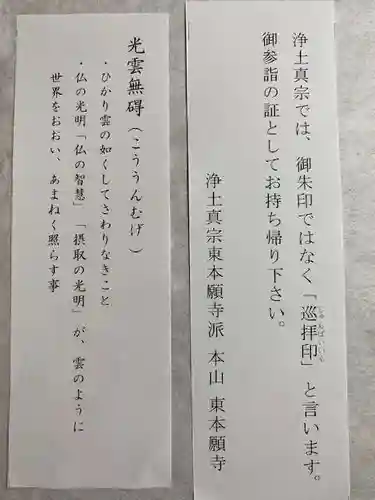 浄土真宗では、御朱印ではなく「巡拝印」と言います。
じゅんぱいいん
御参詣の証としてお持ち帰り下さい。
浄土真宗東本願寺派 本山 東本願寺
光雲無碍（こううんむげ）
・ひかり雲の如くしてさわりなきこと
・仏の光明「仏の智慧」「摂取の光明」が、雲のように
世界をおおい、あまねく照らす事